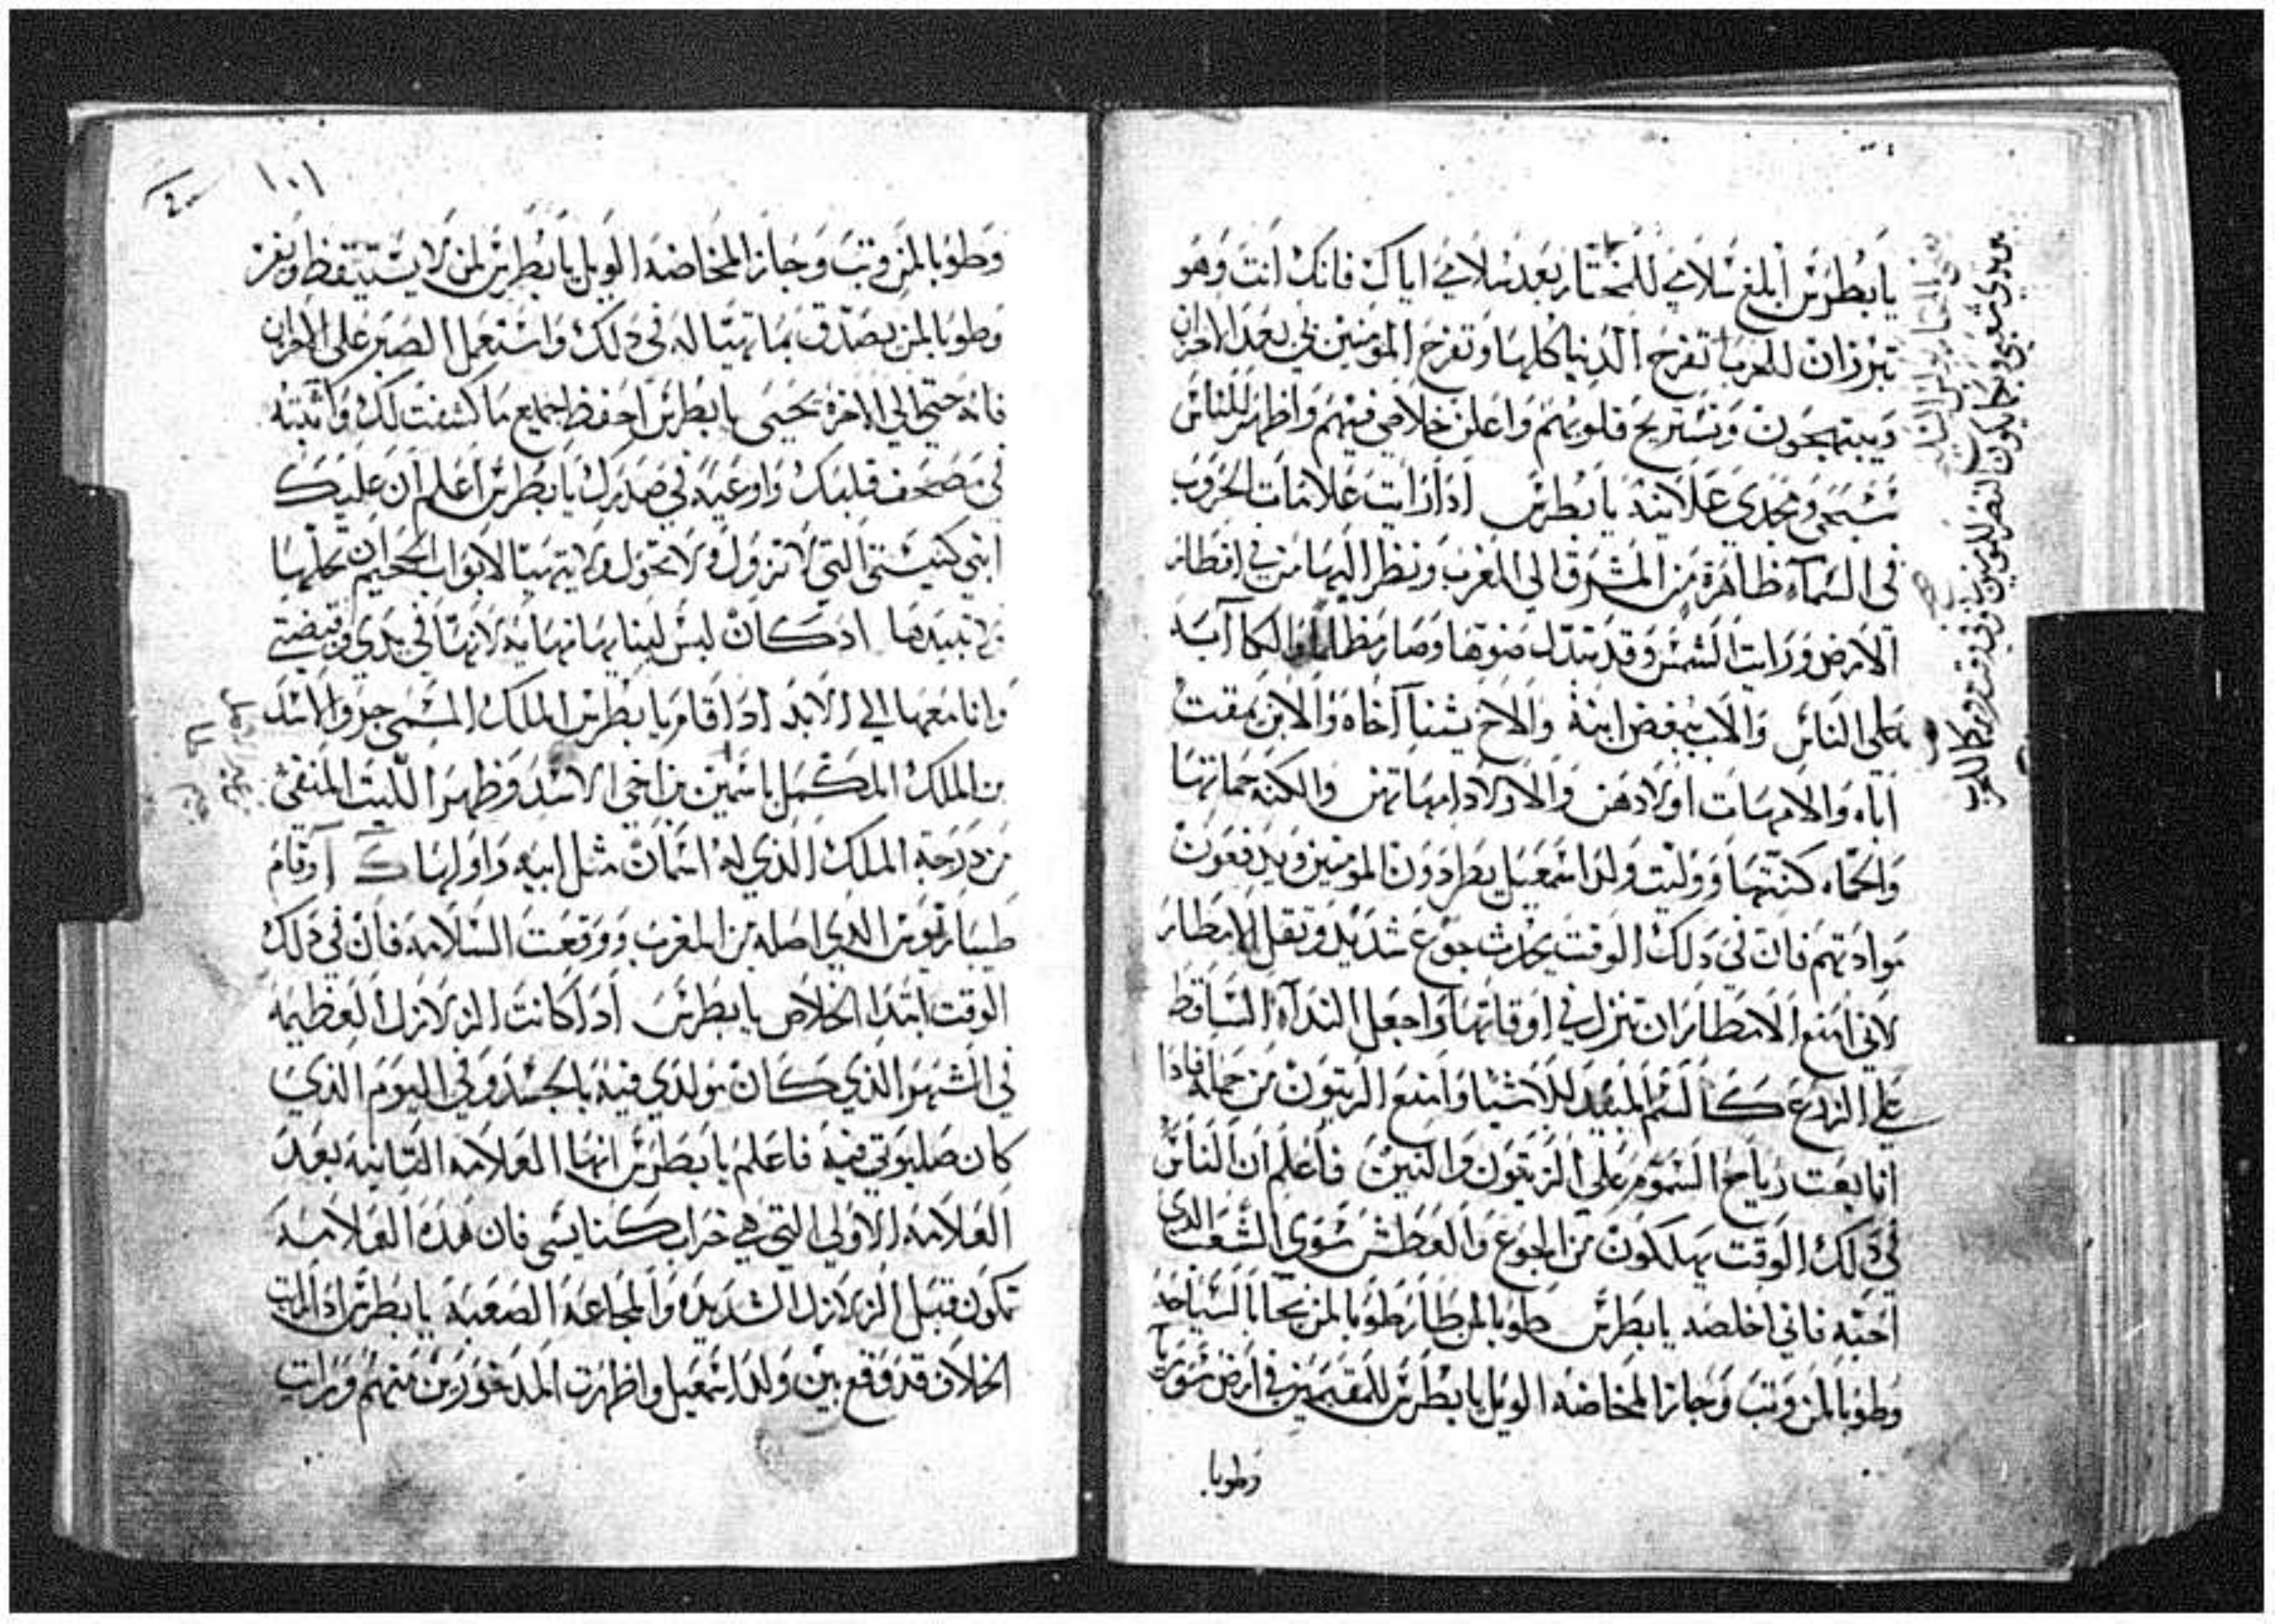 يا بطرس ابلغ سلامي للمختار بعد سلامي اياك فانك انت وهو
تبرزان للحرب تفرح الدنيا كلها وتفرح المومنين بي بعد الاحزان
ويبتهجون وتستريح قلوبهم واعلن خلاصي فيهم واظهر للناس
شبحي ومجدي علانيه يا بطرس اذا رايت علامات الحروب
في السماء ظاهرة من المشرق الي المغرب ونظر اليها من في اقطار
الارض ورايت الشمس وقد تبدل ضوها وصار مظلما والكآبه
على الناس والاب يبغض ابنه والاخ يشنا اخاه والابن يمقت
اباه والامهات اولادهن والاولاد امهاتهن والكنه حماتها
والحماه كنتها ووليت ولد اسمعيل يطردون المومنين ويدفعون
موادتهم فان في دلك الوقت يحدث جوع شديد وتقل الامطار
لاني امنع الامطار ان تنزل في اوقاتها واجعل الندآء الساقط
علي الزرع كالسم المبيد للاشيا وامنع الزيتون من حمله فادا
انا بعت رياح السموم علي الزيتون والتين فاعلم ان الناس
في دلك الوقت يهلكون من الجوع والعطش سوى الشعب الدي
احبه فاني اخلصه يا بطرس طوبا لمن طار طوبا لمن نجا بالسياحه
وطوبا لمن وتب وجاز المخاضه الويل يا بطرس للمقيمين في ارض سوريا
وطوبا
١٠١
وطوبا لمن وتب وجاز المخاضه الويل يا بطرس لمن لا يستيقظ ويفز
وطوبا لمن يصدق بما تهيا له في دلك واستعمل الصبر على الاحزان
فانه حتي الي الاخرة يحيى يا بطرس احفظ جميع ما كشفت لك واثبته
في مصحف قلبك واوعيه في صدرك يا بطرس اعلم ان عليك
ابني كنيستي التي لا تزول ولا تحول ولا يتهيا لابواب الجحيم ان تحلها
ولا تبيدها اد كان ليس لبنايها نهايه لانها في يدي وقبضتي
وانا معها الي الابد ادا قام يا بطرس الملك المسمى جرو الاسد
من الملك المكمل باسمين من اخي الاسد وظهر الليت المنفي
من درجة الملك الذي له اسمان مثل ابيه واولها ك ا وقام
طيباريوس الدي اصله من المغرب ووقعت السلامه فان في دلك
الوقت ابتدا الخلاص يا بطرس ادا كانت الزلازل العظيمه
في الشهر الذي كان مولدي فيه بالجسد وفي اليوم الذي
كان صلبوتي فيه فاعلم يا بطرس انها العلامه التانيه بعد
العلامه الاولي التي هي خراب كنايسي فان هده العلامه
تكون قبل الزلازل الشديده والمجاعه الصعبه يا بطرس ادا رايت
الخلاف قد وقع بين ولد اسمعيل واظهرت المدغورين منهم ورايت